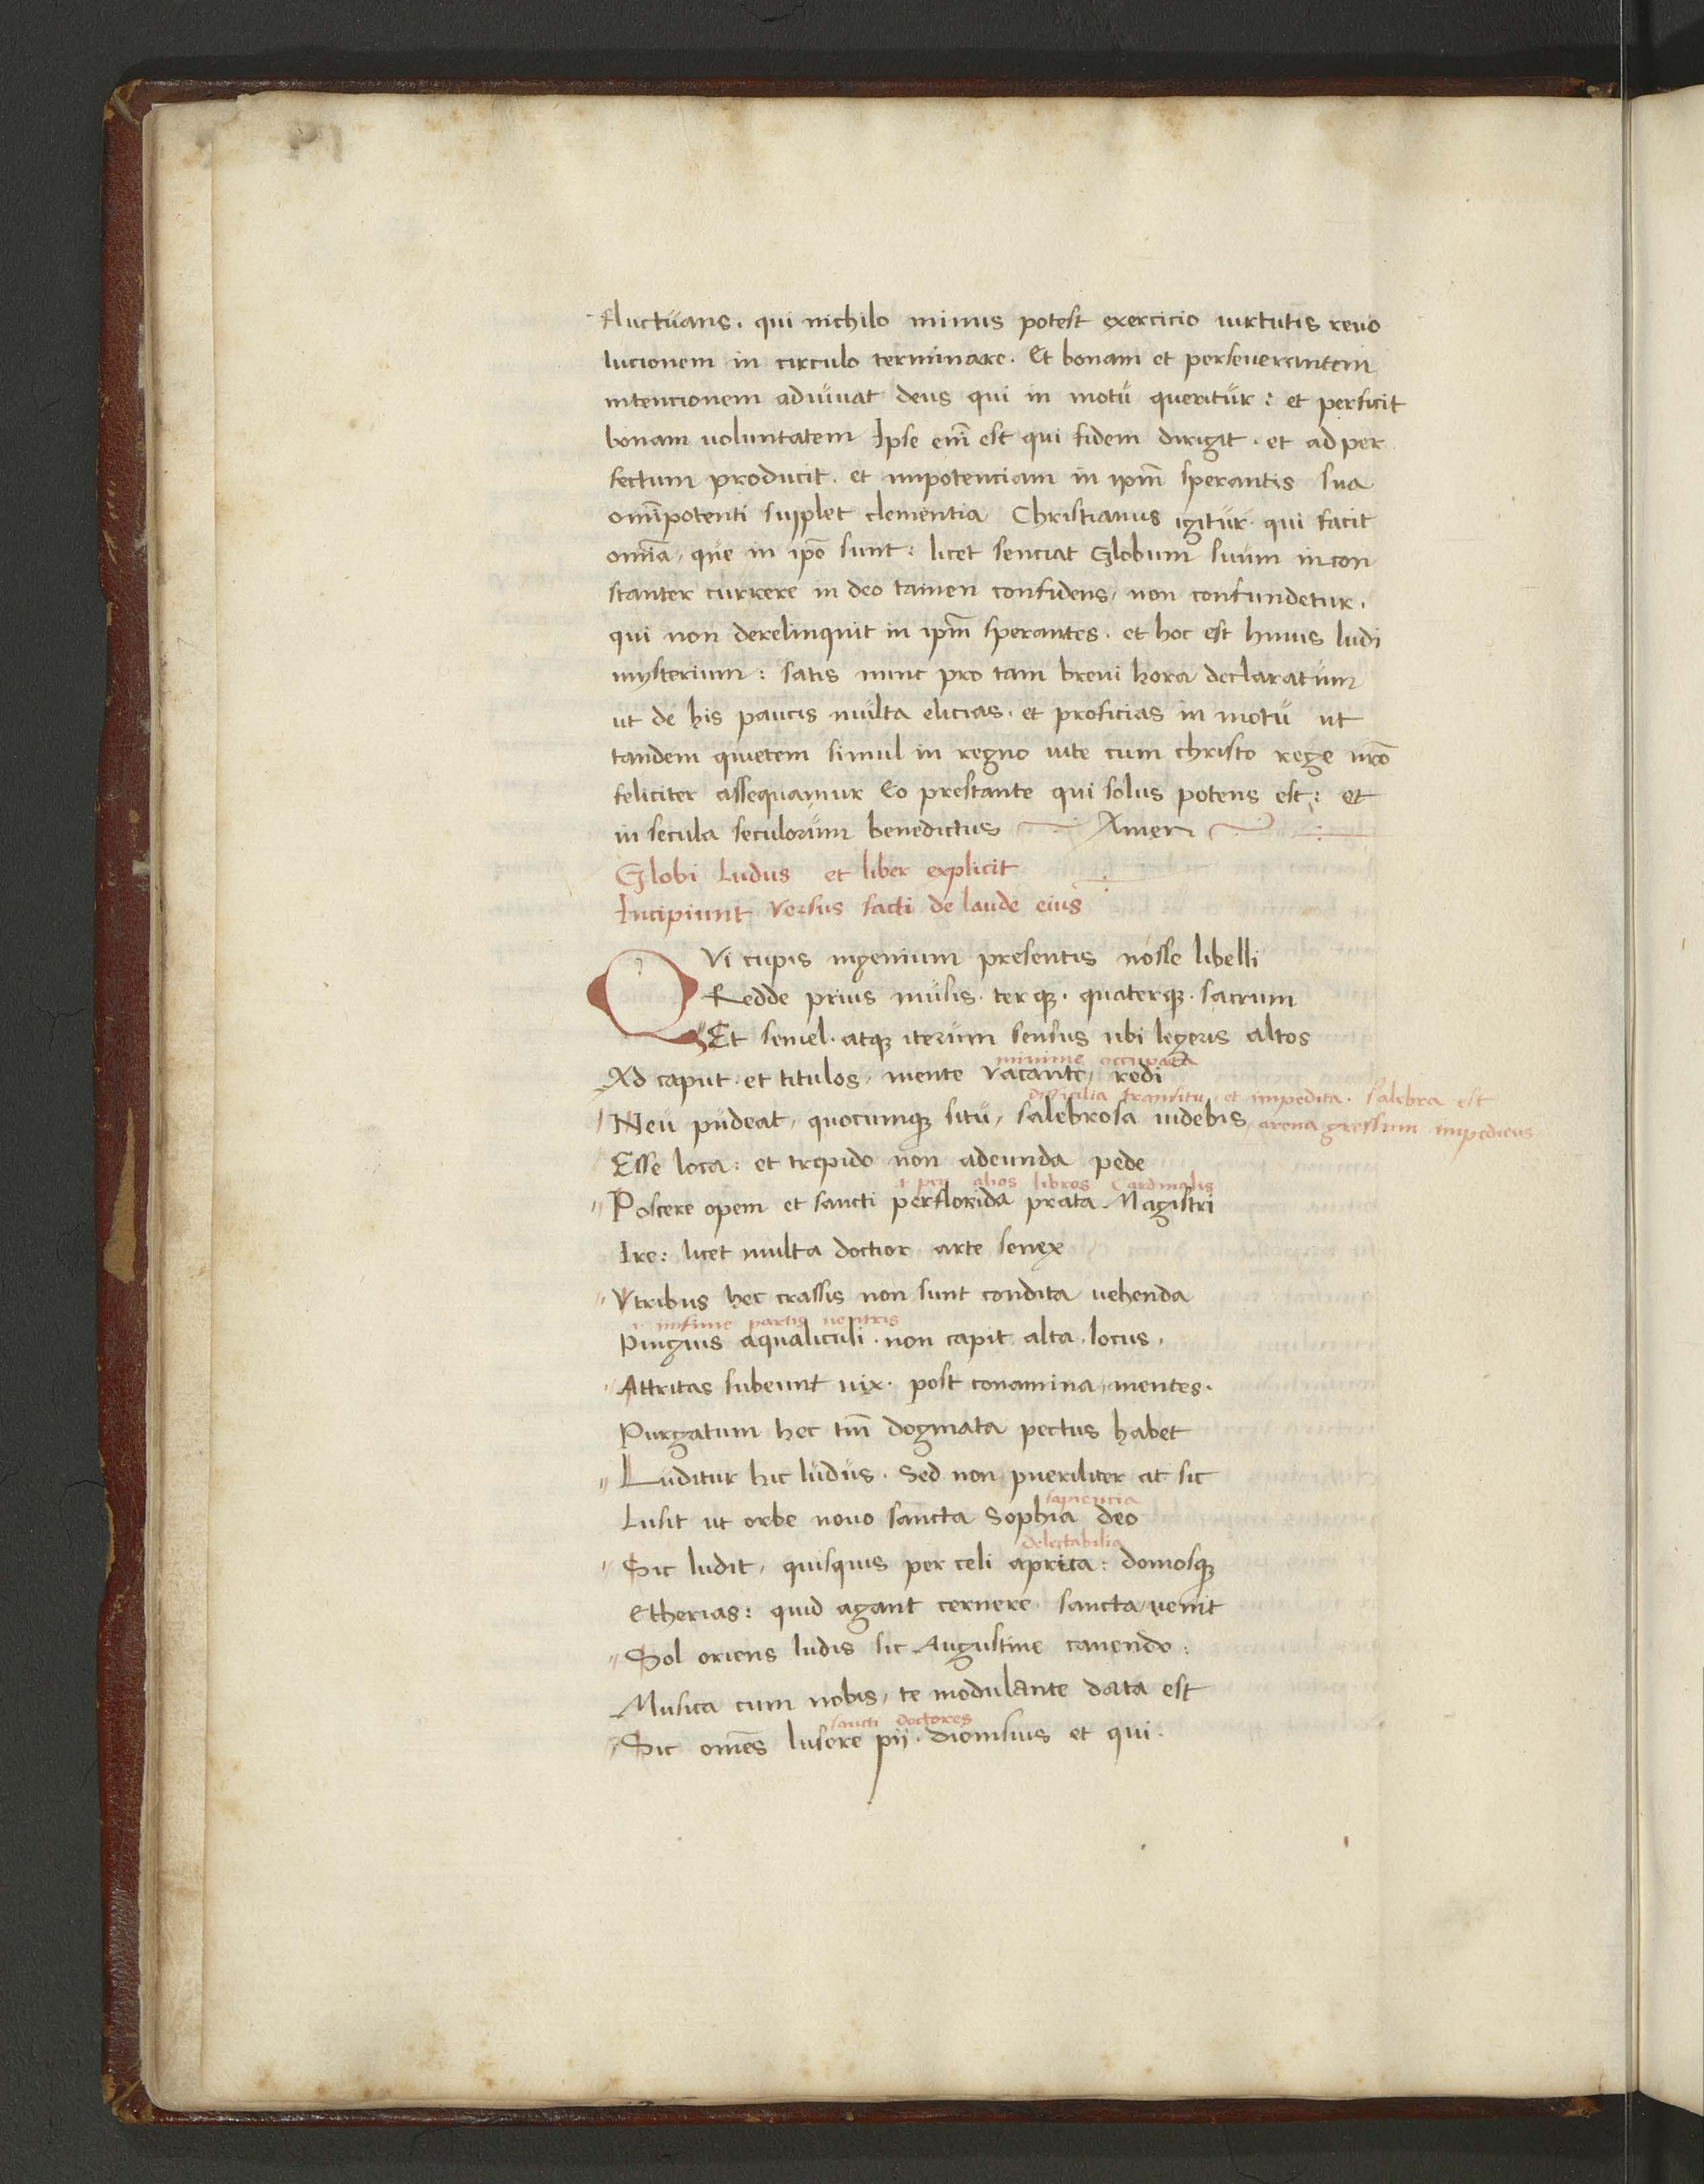 fluctuans. qui nichilo minus potest exercicio uirtutis reuo
lucionem in circulo terminare. Et bonam et perseuerantem
intencionem adiuuat deus qui in motu queritur: et perficit
bonam uoluntatem Ipse em̄ est qui fidem dirigit. et ad per
fectum producit. et impotenciam in ip̄m sperantis sua
om̄ipotenti suplet clementia Christianus igitur. qui facit
om̄ia, que in ip̄o sunt: licet senciat Globum suum incon
stanter currere in deo tamen confidens, non confundetur.
qui non derelinquit in ip̄m sperantes. et hoc est huius ludi
mysterium: satis nunc pro tam breui hora declaratum
ut de his paucis multa elicias. et proficias in motu ut
tandem quietem simul in regno uite cum christo rege nr̄o
feliciter assequamur Eo prestante qui solus potens est: et
in secula seculorum benedictus Amen
Globi Ludus et liber explicit
Incipiunt Versus facti de laude eius
QVi cupis ingenium presentis nosse libelli
Redde prius musis. terqꝫ. quaterqꝫ. sacrum
Et semel. atqꝫ iterum sensus ubi legeris altos
minime occupata
Ad caput. et titulos, mente vacante, redi
difficilia transitu, et impedita. salebra est
Neu pudeat, quocumqꝫ situ, salebrosa uidebis, arena gressum impediens
Esse loca: et trepido non adeunda pede
.i. per alios libros Cardinalis
Poscere opem et sancti perflorida prata Magistri
Ire: licet multa doctior arte senex
Vtribus hec crassis non sunt condita uehenda
.i. infime partis uentris
Pinguis aqualiculi. non capit. alta. locus.
Attritas subeunt uix. post conamina, mentes.
Purgatum hec tm̄ dogmata pectus habet
Luditur hic ludus. Sed non pueriliter at sic
sapiencia
Lusit ut orbe nouo sancta Sophia deo
delectabilia
Sic ludit, quisquis per celi aprica: domosqꝫ
Etherias: quid agant cernere sancta venit
Sol oriens ludis sic Augustine canendo:
Musica cum nobis, te modulante data est
sancti doctores
Sic om̄es lusere pij. dionisius et qui.